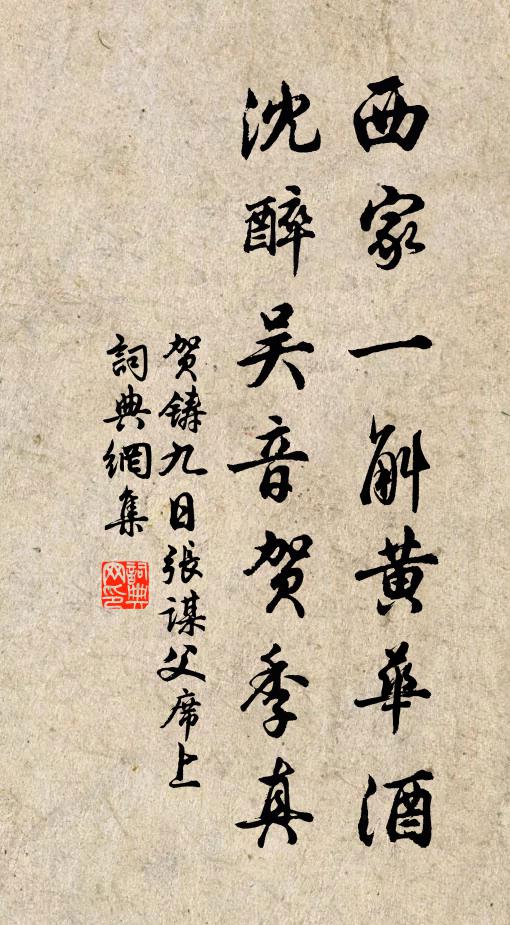 西家一斛黄華酒
沈醉吴音贺季真
贺鋳九日張谋父席上
詞典網集
詞典网印